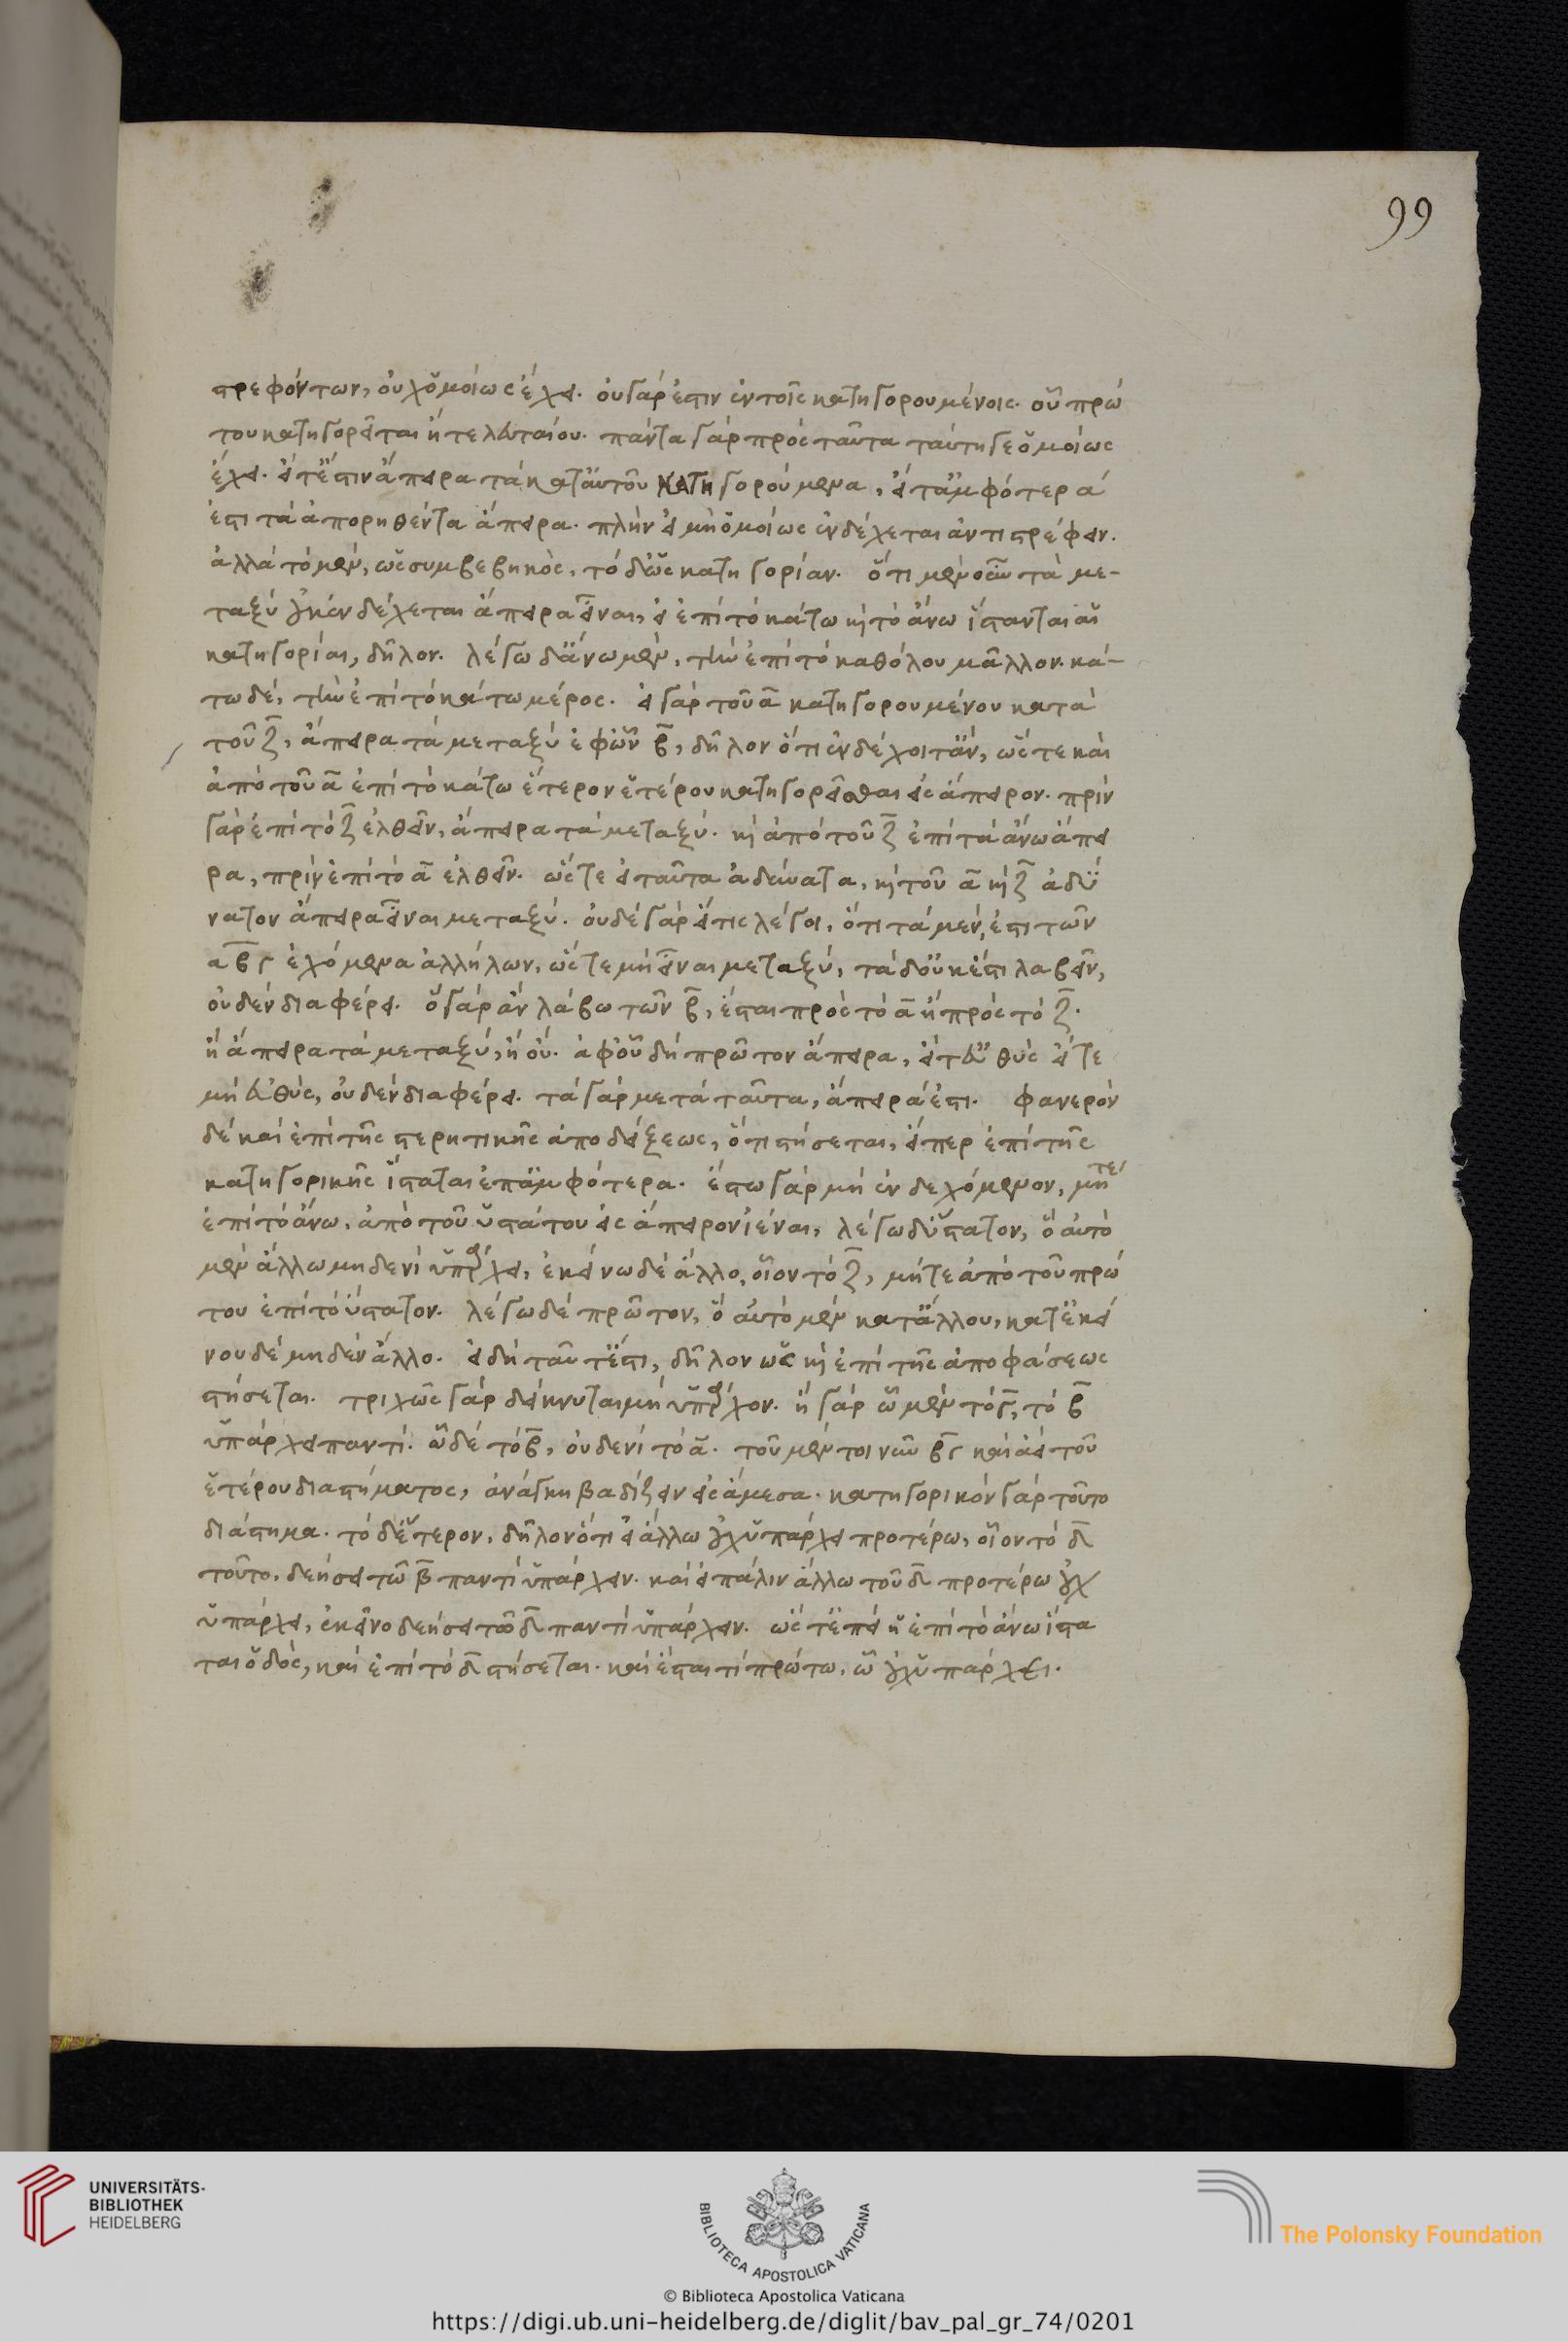 99
στρεφόντων, οὐχ ὁμοίως ἔχει. οὐ γάρ ἐστιν ἐν τοῖς κατηγορουμένοις. οὗ πρώ
του κατηγορεῖται ἢ τελευταίου. πάντα γὰρ πρὸς ταῦτα ταύτη γε ὁμοίως
ἔχει. εἴτ' ἔστιν ἄπειρα τὰ κατ' αὐτοῦ κατηγορούμενα, εἴτ' ἀμφότερά
ἐστι τὰ ἀπορηθέντα ἄπειρα. πλὴν εἰ μὴ ὁμοίως ἐνδέχεται ἀντιστρέφειν.
ἀλλὰ τὸ μὲν, ὡς συμβεβηκὸς, τὸ δ' ὡς κατηγορίαν. ὅτι μὲν οὖν τὰ με-
ταξὺ οὐκ ἐνδέχεται ἄπειρα εἶναι, εἰ ἐπὶ τὸ κάτω καὶ τὸ ἄνω ἵστανται αἱ
κατηγορίαι, δῆλον. λέγω δ' ἄνω μὲν, τὴν ἐπὶ τὸ καθόλου μᾶλλον. κά-
τω δὲ, τὴν ἐπὶ τὸ κάτω μέρος. εἰ γὰρ τοῦ α κατηγορουμένου κατὰ
τοῦ ζ, ἄπειρα τὰ μεταξὺ ἐφ' ὧν β, δῆλον ὅτι ἐνδέχοιτ' ἄν, ὥστε καὶ
ἀπὸ τοῦ α ἐπὶ τὸ κάτω ἕτερον ἑτέρου κατηγορεῖσθαι εἰς ἄπειρον. πρὶν
γὰρ ἐπὶ τὸ ζ ἐλθεῖν, ἄπειρα τὰ μεταξύ. καὶ ἀπὸ τοῦ ζ ἐπὶ τὰ ἄνω ἄπει
ρα, πρὶν ἐπὶ τὸ α ἐλθεῖν. ὥστε εἰ ταῦτα ἀδύνατα, καὶ τοῦ α καὶ ζ ἀδύ
νατον ἄπειρα εἶναι μεταξύ. οὐδὲ γὰρ εἴ τις λέγοι, ὅτι τὰ μέν, ἐστι τῶν
αβγ ἐχόμενα ἀλλήλων, ὥστε μὴ εἶναι μεταξύ, τὰ δ' οὐκ ἔστι λαβεῖν,
οὐδὲν διαφέρει. ὃ γὰρ ἂν λάβω τῶν β, ἔσται πρὸς τὸ α ἢ πρὸς τὸ ζ.
ἢ ἄπειρα τὰ μεταξύ, ἢ οὔ. ἀφ' οὗ δὴ πρῶτον ἄπειρα, εἴτ' εὐθὺς εἴτε
μὴ εὐθὺς, οὐδὲν διαφέρει. τὰ γὰρ μετὰ ταῦτα, ἄπειρά ἐστι. φανερὸν
δὲ καὶ ἐπὶ τῆς στερητικῆς ἀποδείξεως, ὅτι στήσεται, εἴπερ ἐπὶ τῆς
κατηγορικῆς ἵσταται ἐπ' ἀμφότερα. ἔστω γὰρ μὴ ἐνδεχόμενον, μήτε
ἐπὶ τὸ ἄνω, ἀπὸ τοῦ ὑστάτου εἰς ἄπειρον ἰέναι, λέγω δ' ὕστατον, ὃ αὐτὸ
μὲν ἄλλω μηδενὶ ὑπάρχει, ἐκείνω δὲ ἄλλο, οἷον τὸ ζ, μήτε ἀπὸ τοῦ πρώ
του ἐπὶ τὸ ὕστατον. λέγω δὲ πρῶτον, ὃ αὐτὸ μὲν κατ' ἄλλου, κατ' ἐκεί
νου δὲ μηδὲν ἄλλο. εἰ δὴ ταῦτ' ἔστι, δῆλον ὡς καὶ ἐπὶ τῆς ἀποφάσεως
στήσεται. τριχῶς γὰρ δείκνυται μὴ ὑπάρχον. ἢ γὰρ ὧ μὲν τὸ γ, τὸ β
ὑπάρχει παντί. ὧ δὲ τὸ β, οὐδενὶ τὸ α. τοῦ μὲν τοίνυν βγ καὶ ἀεὶ τοῦ
ἑτέρου διαστήματος, ἀνάγκη βαδίζειν εἰς ἄμεσα. κατηγορικὸν γὰρ τοῦτο
διάστημα. τὸ δ' ἕτερον, δῆλον ὅτι εἰ ἄλλω οὐχ ὑπάρχει προτέρω, οἷον τὸ δ
τοῦτο, δεήσει τῶ β παντὶ ὑπάρχειν. καὶ εἰ πάλιν ἄλλω τοῦ δ προτέρω οὐχ
ὑπάρχει, ἐκεῖνο δεήσει τῶ δ παντὶ ὑπάρχειν. ὥστ' ἐπεὶ ἡ ἐπὶ τὸ ἄνω ἵστα
ται ὁδὸς, καὶ ἐπὶ τὸ δ στήσεται. καὶ ἔσται τί πρώτω, ὧ οὐχ ὑπάρχει.
UNIVERSITÄTS-
BIBLIOTHEK
HEIDELBERG
BIBLIOTECA APOSTOLICA VATICANA
The Polonsky Foundation
© Biblioteca Apostolica Vaticana
https://digi.ub.uni-heidelberg.de/diglit/bav_pal_gr_74/0201